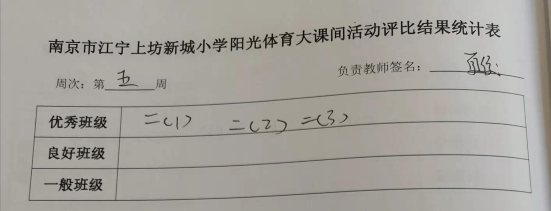 南京市江宁上坊新城小学阳光体育大课间活动评比结果统计表
周次：第五周 负责教师签名：
优秀班级 二(1) 二(2) 二(3)
良好班级
一般班级